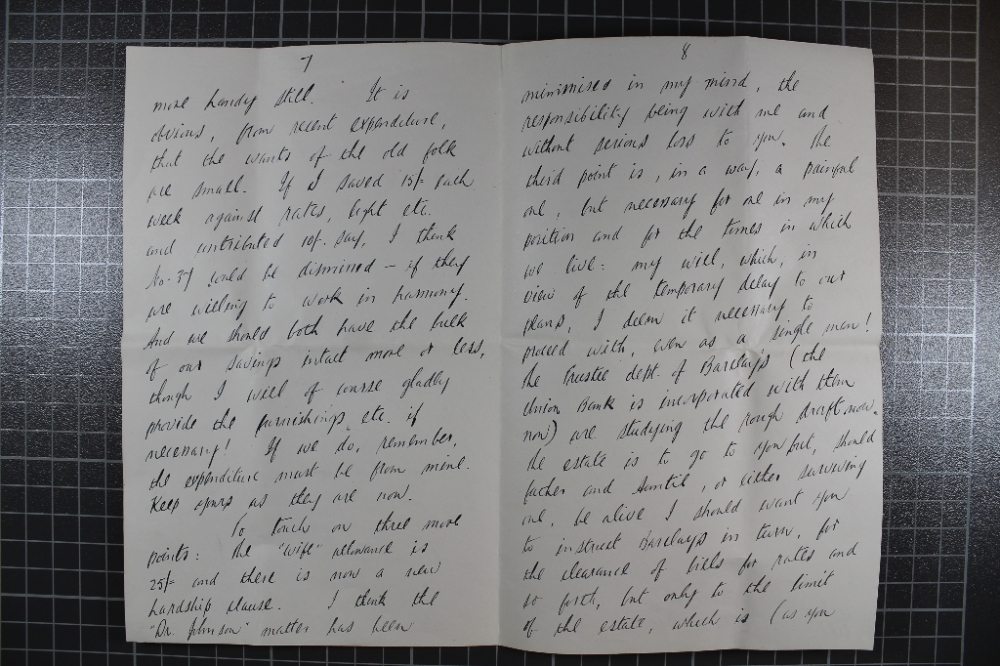 7
more handy still. It is
obvious, from recent expenditure,
that the wants of the old folk
are small. If I saved 15/- each
week against rates, light etc.
and contributed 10/- say, I think
No. 37 could be dismissed – if they
are willing to work in harmony.
And we should both have the bulk
of our savings intact more or less,
though I will of course gladly
provide the furnishings etc. if
necessary! If we do, remember,
the expenditure must be from mine.
Keep yours as they are now.
To touch on three more
points: the "wife" allowance is
25/- and there is now a new
hardship clause. I think the
"Dr. Johnson" matter has been
8
minimised in my mind, the
responsibility being with me and
without serious loss to you. The
third point is, in a way, a painful
one, but necessary for one in my
position and for the times in which
we live: my will, which, in
view of the temporary delay to our
plans, I deem it necessary to
proceed with, even as a single man!
The Trustee dept. of Barclays (the
Union Bank is incorporated with them
now) are studying the rough draft now.
The estate is to go to you but, should
father and Auntie, or either surviving
one, be alive I should want you
to instruct Barclays in turn, for
the clearance of bills for rates and
so forth, but only to the limit
of the estate, which is (as you